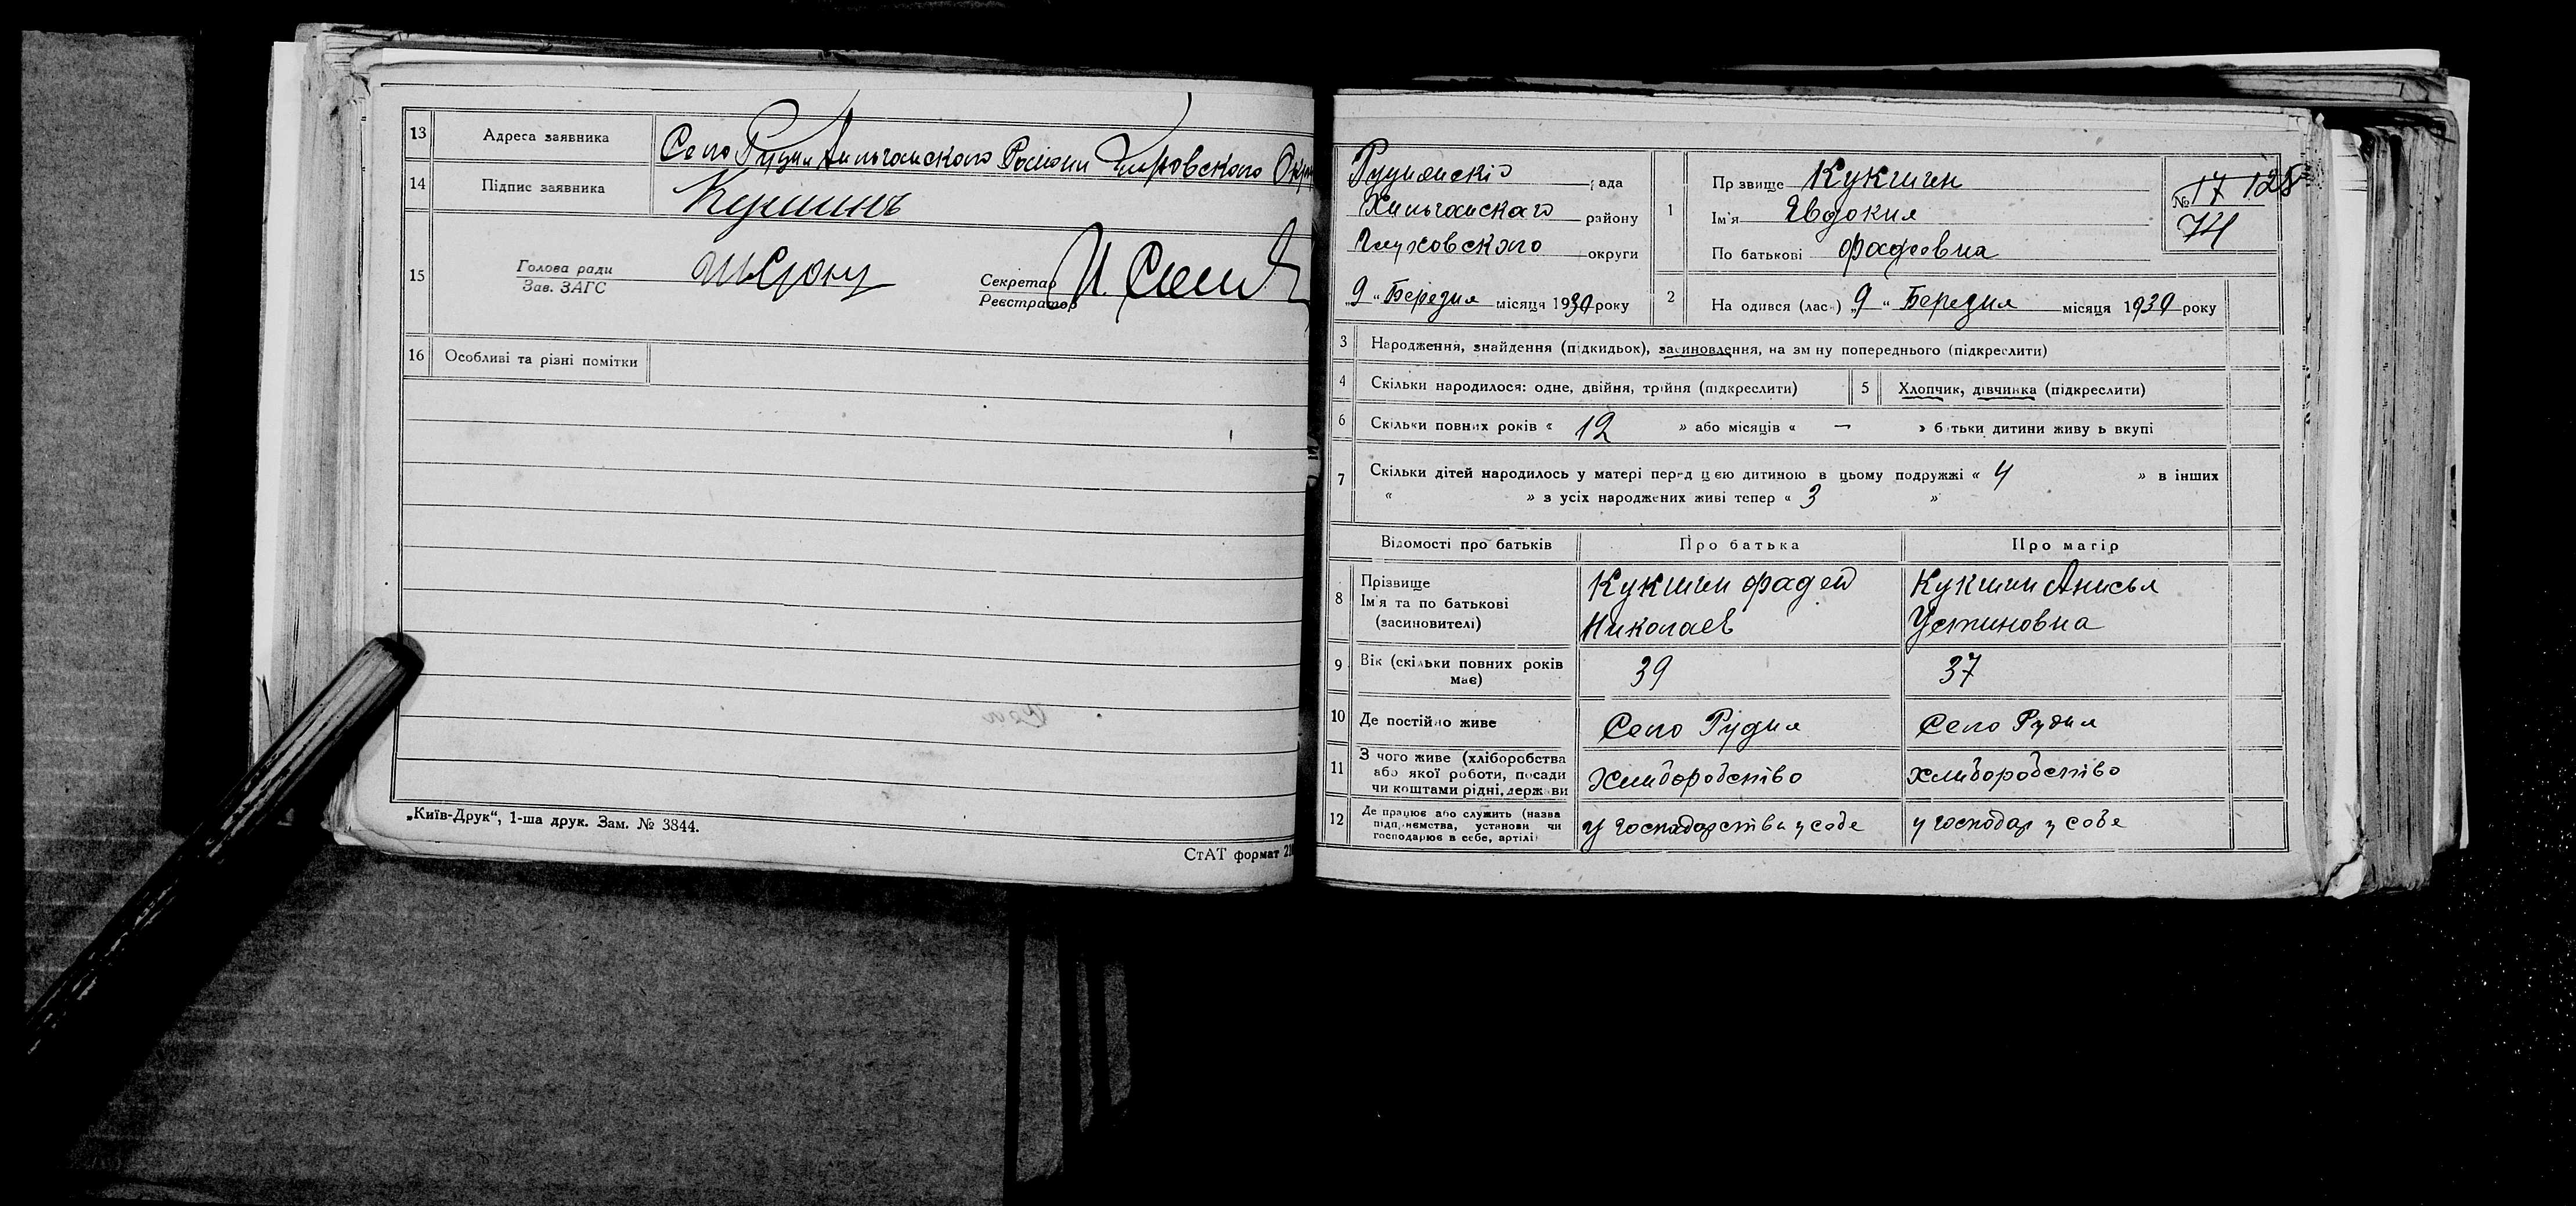 13 Адреса заявника Село Рудни Хильчанского Району Глуховского Окр
14 Підпис заявника
15 Голова ради
Зав. ЗАГС
Секретар
Реєстратор
16 Особливі та різні помітки
„Київ-Друк“, 1-ша друк. Зам. № 3844.
СтАТ формат
Руднянскіо рада
Хильчанскаго району
Глуховского округи
„9“ Березня місяця 1930 року
1 Прзвище Кукшин
Ім'я Явдокия
По батькові Фадеовна
№ 17 128
74
2 На одився (лас) „9“ Березня місяця 1930 року
3 Народження, знайдення (підкидьок), засиновлення, на зм ну попереднього (підкреслити)
4 Скільки народилося: одне, двійня, трійня (підкреслити)
5 Хлопчик, дівчинка (підкреслити)
6 Скільки повних років « 12 » або місяців « — » б тьки дитини живу ь вкупі
7 Скільки дітей народилось у матері перед цєю дитиною в цьому подружжі « 4 » в інших
« » з усіх народжених живі тепер « 3 »
Відомості про батьків Про батька Про матір
8 Прізвище
Ім'я та по батькові
(засиновителі)
Кукшин Фадей
Николаев
Кукшин Анисья
Устиновна
9 Вік (скільки повних років
має)
39 37
10 Де постійно живе Село Рудня Село Рудня
11 З чого живе (хліборобства
або якої роботи, посади
чи коштами рідні, держави
Хлиборобство хлиборобство
12 Де працює або служить (назва
підприємства, установи чи
господарює в себе, артілі)
у господарстви у собе у господар у собе